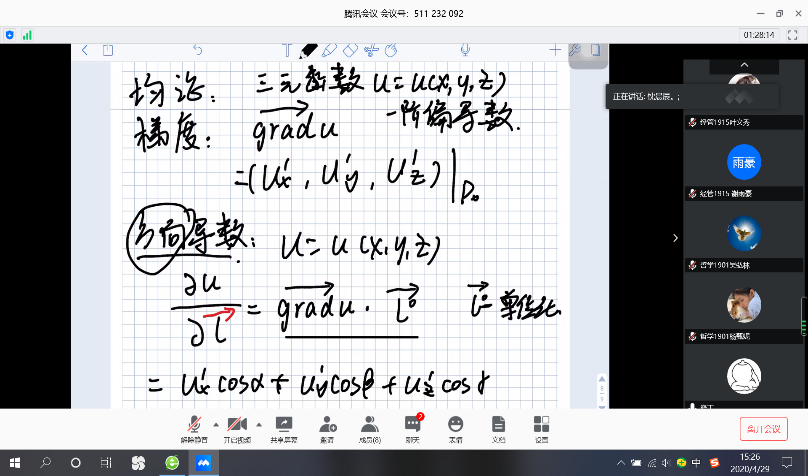 腾讯会议 会议号：511 232 092
01:28:14
均设：三元函数 u=u(x,y,z)
一阶偏导数.
梯度：grad u
=(u'x , u'y , u'z)|P₀
方向导数：u=u(x,y,z)
∂u/∂l = grad u · l⁰ l⁰ 单位化
= u'x cosα + u'y cosβ + u'z cosγ
正在讲话:
经管1915叶文秀
雨豪
经管1915 谢雨豪
哲学1901吴弘林
哲学1901杨甄妮
解除静音
开启视频
共享屏幕
邀请
成员(8)
2
聊天
表情
文档
设置
离开会议
中
15:26
2020/4/29